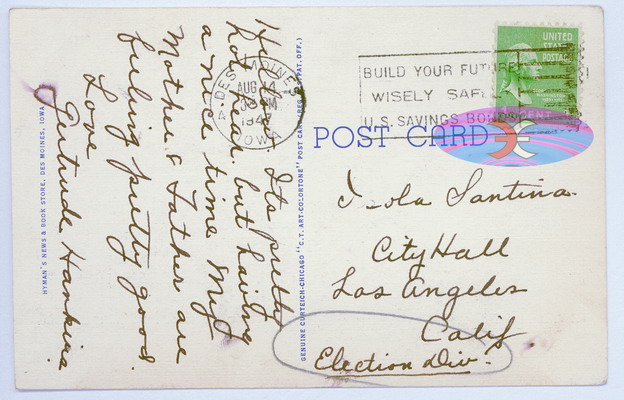 Its pretty
hot here but having
a nice time My
Mother & Father are
feeling pretty good.
Love
Gertrude Hankins
HYMAN'S NEWS & BOOK STORE, DES MOINES, IOWA
GENUINE CURTEICH-CHICAGO "C.T. ART-COLORTONE" POST CARD (REG. U.S. PAT. OFF.)
DES MOINES
AUG 14
PM
1947
IOWA
BUILD YOUR FUTURE
WISELY SAFELY
U.S. SAVINGS BONDS
UNITED
STATES
POSTAGE
1 CENT
POST CARD
Isola Santina
City Hall
Los Angeles
Calif
Election Div.